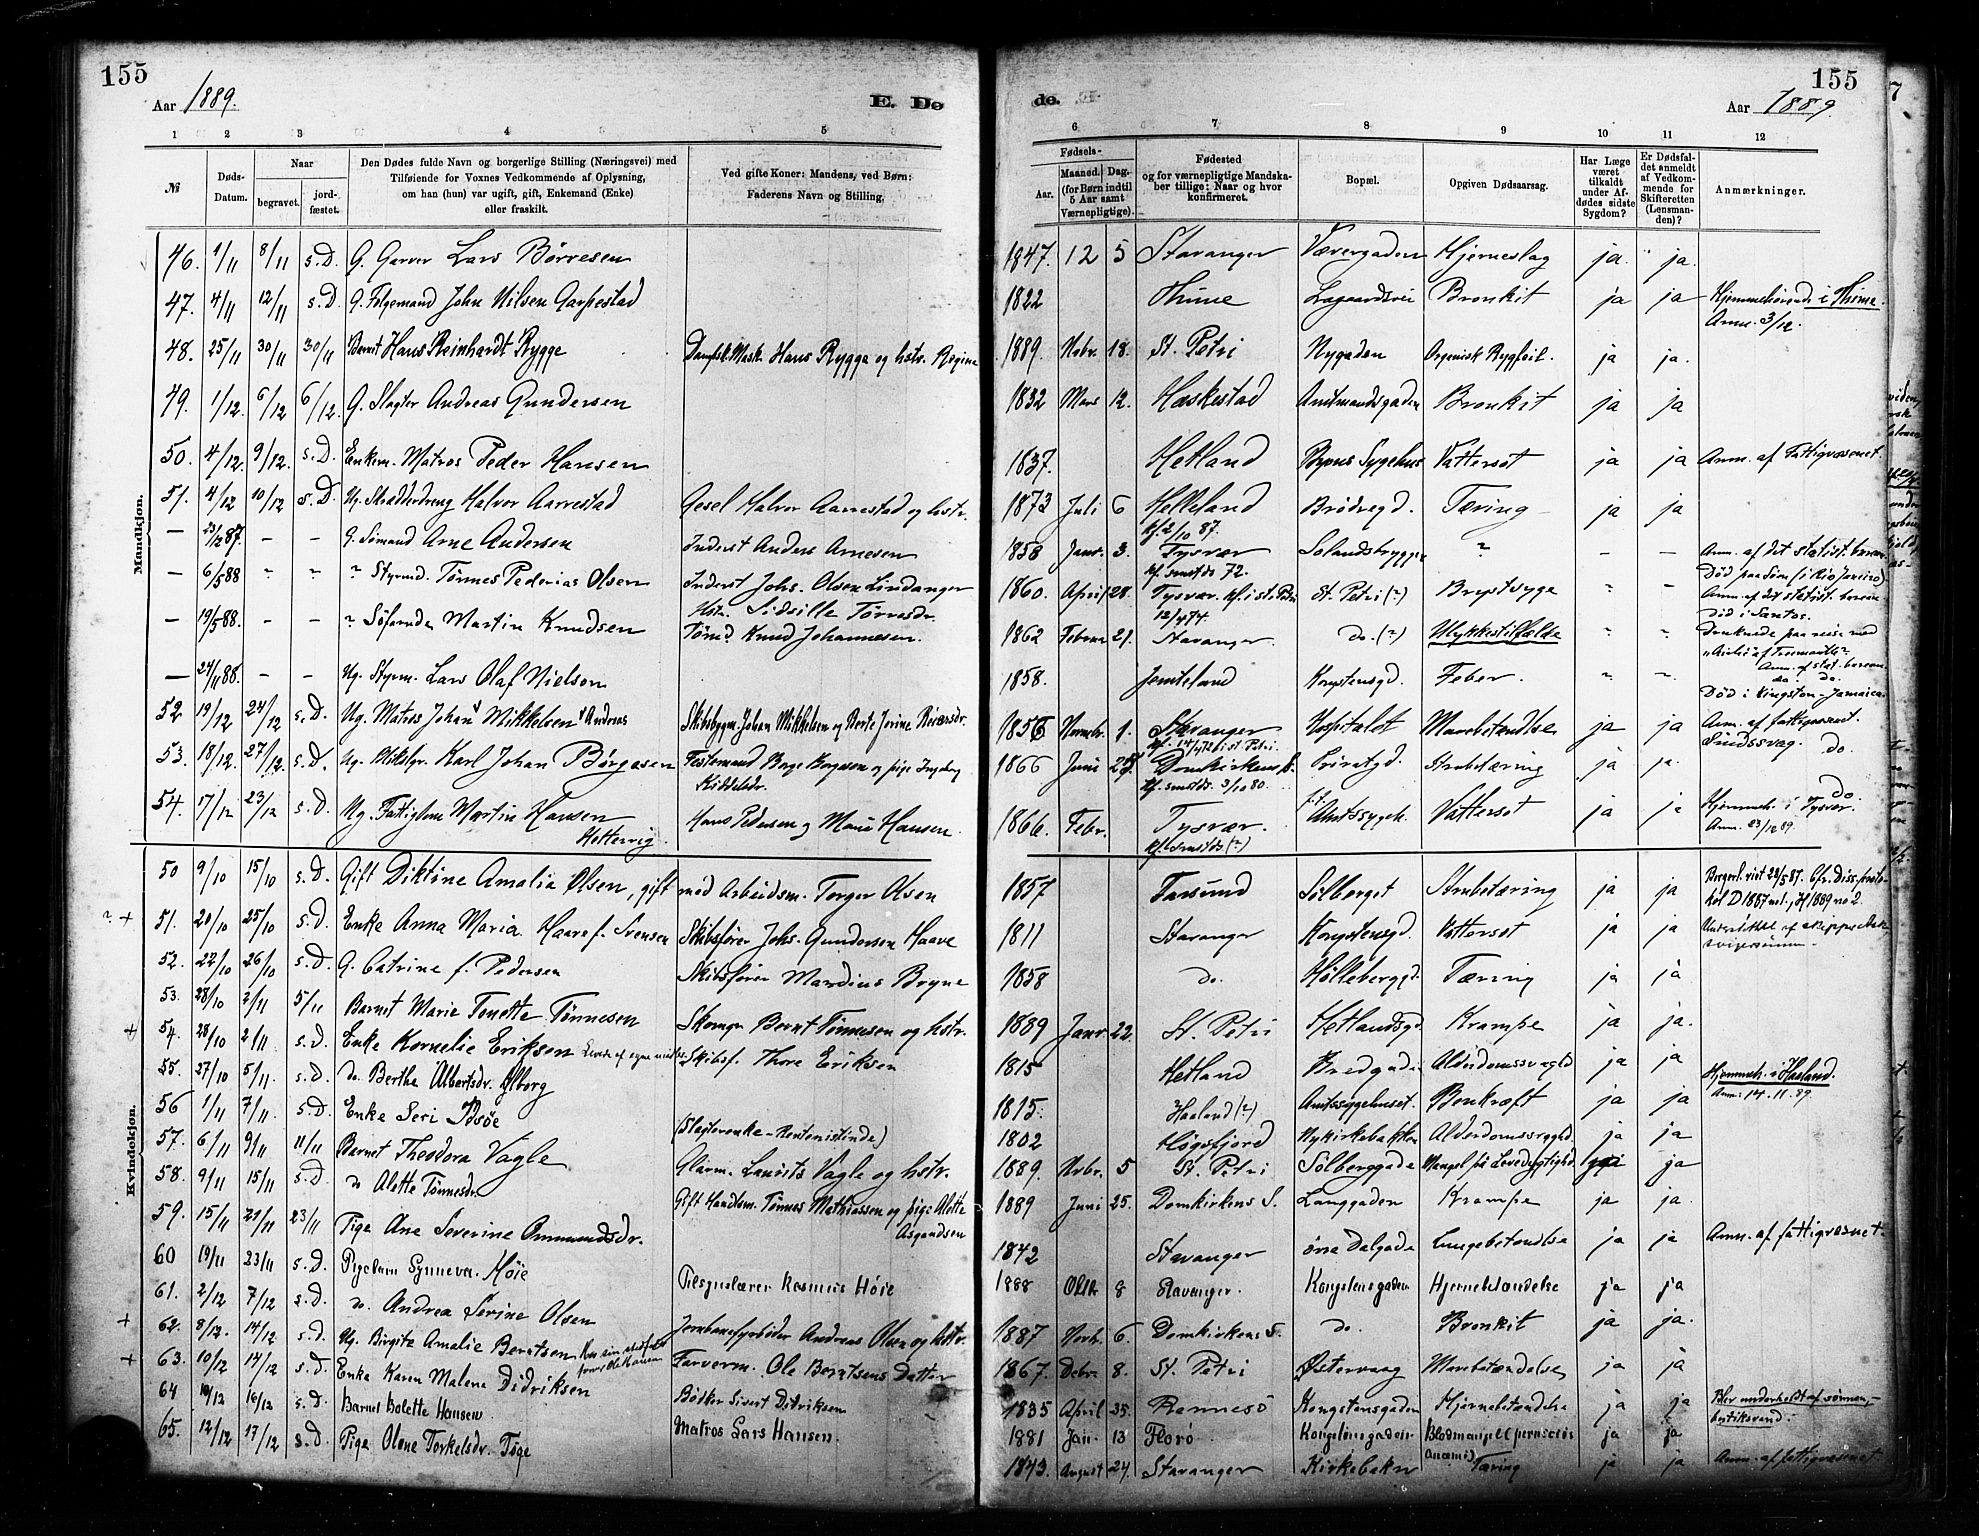 155
Aar 1889.
E. De
1 2 3 4 5
№
Døds-Datum.
Naar
begravet.
jord-fæstet.
Den Dødes fulde Navn og borgerlige Stilling (Næringsvei) med
Tilføiende for Voxnes Vedkommende af Oplysning,
om han (hun) var ugift, gift, Enkemand (Enke)
eller fraskilt.
Ved gifte Koner: Mandens, ved Børn:
Faderens Navn og Stilling.
Mandkjøn.
46. 1/11 8/11 s.D. G. Garver Lars Børresen
47. 4/11 12/11 s.D. G. John Nilsen
48. 25/11 30/11 30/11 Barnet Hans Reinhardt Rygge Dampsk. Mask. Hans Rygge og hstr. Regine
49. 1/12. 6/12 6/12. G. Slagter Andreas Gundersen
50. 4/12. 9/12. s.D. Enkem. Matros Peder Hansen
51. 4/12 10/12 s.D. Ug. Skrædderdreng Halvor Aarrestad Gesel Halvor Aarrestad og hstr.
— 23/12 87. – – G. Sømand Arne Andersen Inderst Anders Arnesen
— 6/5 88 " " " Styrmd. Tønnes Pederias Olsen Inderst Johs. Olsen Lindanger
Hstr. Sidsille Tørresdr.
— 19/5 88. – – " Søfarende Martin Knudsen Tømd. Knud Johannesen.
— 24/11 88. – – Ug. Styrm. Lars Olaf Nielsen
52 19/12 24/12 s.D. Ug. Matros Johan Mikkelsen Andreas Skibsbygm. Johan Mikkelsen og Berte Jorine
53. 18/12. 27/12. s.D. Ug. Karl Johan Børgesen Børge Børgesen og pige Ingeborg
Kiddelsdr.
54. 17/12 23/12 s.D. Ug. Fattiglem Martin Hansen Hans Pedersen og Hansen
Hettervig.
Kvindekjøn.
50 9/10 15/10 s.D. Gift Diktine Amalia Olsen, gift med Arbeidsm. Torger Olsen
? + 51. 20/10 25/10 s.D. Enke Anna Maria Haave f. Svensen Skibsfører Johs. Gundersen Haave
52. 22/10 26/10 s.D. G. Catrine f. Pedersen Skibsfører Mandius Bryne
53. 28/10 2/11 5/11 Barnet Marie Tonette Tønnesen Skomgr. Bernt Tønnesen og hstr.
+ 54. 28/10 2/11 s.D. Enke Kornelie Eriksen Levede af egne midler Skibsf. Thore Eriksen
55. 27/10 5/11 s.D. do Berthe Albertsdr. Ølborg
56 1/11 7/11 s.D. Enke Seri Bsøe (Slagterenke – Rentenistinde)
57. 6/11 9/11 11/11 Barnet Theodora Vagle Glarm. Laurits Vagle og hstr.
58. 9/11 15/11 s.D. do Alette Tønnesdr. Gift Handlsm. Tønnes Mathiassen og pige Alette
Asgaudsen
59. 15/11 21/11 23/11 Pige Ane Severine Ommundsdr.
60 19/11 23/11 s.D. Pigebarn Synneva Høie Tilsynslærer Rasmus Høie
61. 2/12 7/12 s.D. do. Andrea Serine Olsen Jernbanefyrbøder Andreas Olsen og hstr.
+ 62. 8/12. 14/12. s.D. Ug. Birgite Amalie Berntsen Farverm. Ole Berntsens Datter
+ 63. 10/12 14/12 s.D. Enke Karen Malene Didriksen Bødker Sivert Didriksen
64 10/12 16/12 s.D. Barnet Bolette Hansen Matros Lars Hansen.
65. 12/12 17/12 s.D. Pige Olene Torkelsdr. Tøge
155
de.
Aar 1889.
6 7 8 9 10 11 12
Fødsels-
Aar.
Maaned. Dag.
(for Børn indtil
5 Aar samt
Værnepligtige).
Fødested
og for værnepligtige Mandska-
ber tillige: Naar og hvor
konfirmeret.
Bopæl.
Opgiven Dødsaarsag.
Har Læge
været
tilkaldt
under Af-
dødes sidste
Sygdom?
Er Dødsfal-
det anmeldt
af Vedkom-
mende for
Skifteretten
(Lensman-
den)?
Anmærkninger.
1847. 12 5 Stavanger Værergaden Hjerneslag ja. ja.
1822 Thime Lagaardsvei Bronkit ja ja Hjemmehørende i Thime.
Anm. 3/12.
1889. Nvbr. 18. St. Petri Nygaden Organisk Rygfeil. ja ja.
1832 Mars 12. Heskestad Amtmandsgaden Bronkit ja ja
1837. Hetland Byens Sygehus Vattersot ja ja Anm. af Fattigvæsenet
1873 Juli 6 Helleland Brødregd. Tæring ja ja
kf. 2/10 87.
1858 Janr. 3. Tysvær Solandsbryggen " – – Anm. af det statist. bureau
kf. smstds 72. Død paa Søen (i Rio Janeiro)
1860. April 28. Tysvær kf. i St. Petri St. Petri (?) Brystsyge " – Anm. af det statist. bureau
12/4 74 Død i Santos.
1862 Februar 21. Stavanger do. (?) Ulykkestilfælde " " Druknede paa reise med
Anm. af stat. bureau
1858. Jemteland Kongstensgd. Feber. " " do. do.
Død i Kingston – Jamaica.
1856 Novembr. 1. Stavanger Hospitalet Mavebetændelse ja ja Anm. af fattigvæsenet.
Sindssvag. do.
1866 Juni 25. Domkirkens S. Privatgd. Strubetæring ja ja.
kf. smstds. 3/10 80. do
1866. Febr. Tysvær. Amtssygeh. Vattersot ja ja Hjemmeh. i Tysvær.
kf. smstds (?) Anm. 23/12 89.
1857 Farsund Solberget Strubetæring ja ja
1811 Stavanger Kongstensgd. Vattersot ja ja
svigersønnen
1858 do. Hølleberggd. Tæring ja ja
1889 Janr. 22. St. Petri Hetlandsgd. Krampe ja ja.
1815 Hetland Bredgaden Alderdomssvaghd ja ja
1815. Haaland (?) Amtssygehuset. Benkræft ja ja Hjemmeh. i Haaland.
Anm. 14.11.89.
1802 Høgsfjord Nykirkebakken Alderdomssvghd. ja ja
1889. Nvbr. 5 St. Petri Solberggade Mangel på Levedygtighd. ja ja
1889 Juni 25. Domkirkens S. Langgaden Krampe ja ja.
1842 Stavanger øvre Dalgade Lungebetændelse ja ja Anm. af fattigvæsnet.
1888 Oktr 8 Stavanger. Kongstensgaden Hjernebetændelse ja ja
1887 Novbr. 6. Domkirkens S. do. Bronkit ja ja.
1867. Debr. 8. St. Petri Østervaag Mavebetændelse ja ja
1835 April 25. Rennesø Kongstensgaden Hjernebetændelse ja ja Blev underholdt af sønnen,
1881 Jan. 13 Florø Kongstensgaden Blodmangel (perniciøs ja ja
Anæmi)
1843. August 24. Stavanger Kirkebakn Tæring ja ja Anm. af fattigvæsenet